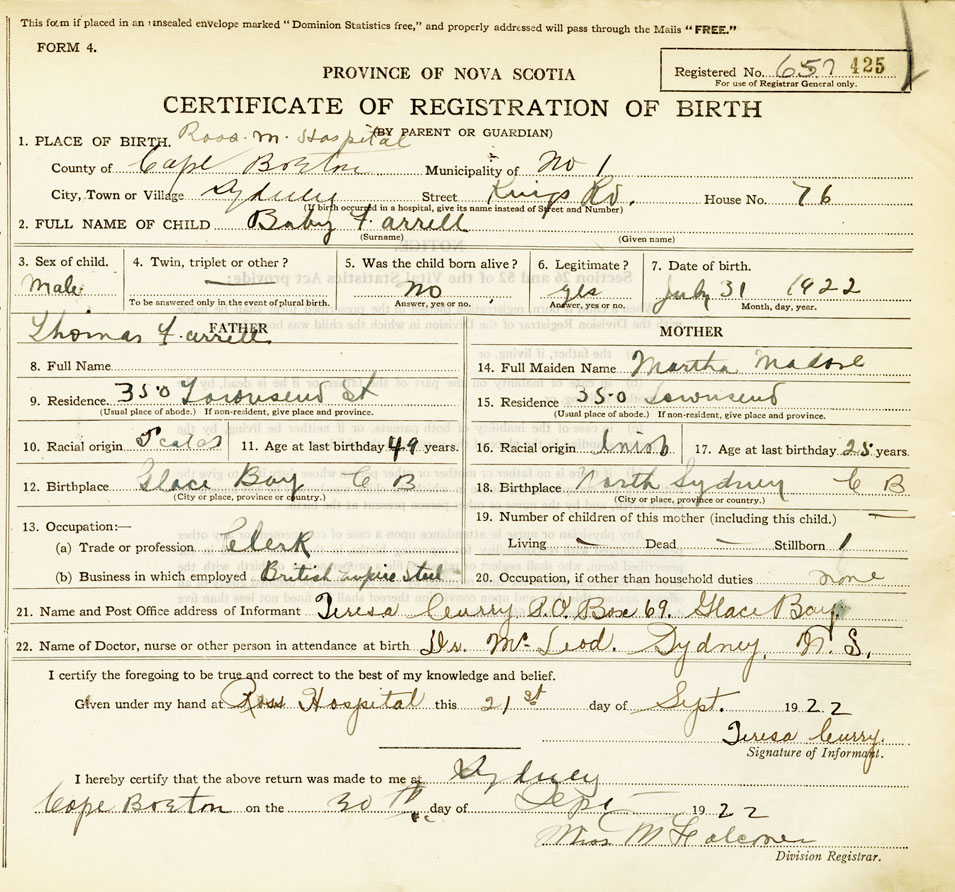 This form if placed in an unsealed envelope marked "Dominion Statistics free," and properly addressed will pass through the Mails "FREE."
FORM 4.
Registered No. 657 425
For use of Registrar General only.
PROVINCE OF NOVA SCOTIA
CERTIFICATE OF REGISTRATION OF BIRTH
(BY PARENT OR GUARDIAN)
1. PLACE OF BIRTH. Ross. M. Hospital
County of Cape Breton Municipality of No 1
City, Town or Village Sydney Street Kings Rd. House No. 76
(If birth occurred in a hospital, give its name instead of Street and Number)
2. FULL NAME OF CHILD Baby Farrell
(Surname) (Given name)
3. Sex of child. 4. Twin, triplet or other? 5. Was the child born alive? 6. Legitimate? 7. Date of birth.
Male — No yes July 31 1922
To be answered only in the event of plural birth. Answer, yes or no. Answer, yes or no. Month, day, year.
FATHER MOTHER
Thomas Farrell
8. Full Name 14. Full Maiden Name Martha
9. Residence 350 Townsend St 15. Residence 350 Townsend
(Usual place of abode.) If non-resident, give place and province. (Usual place of abode.) If non-resident, give place and province.
10. Racial origin Scotch 11. Age at last birthday 49 years. 16. Racial origin Irish 17. Age at last birthday 25 years.
12. Birthplace Glace Bay C B 18. Birthplace North Sydney C B
(City or place, province or country.) (City or place, province or country.)
13. Occupation:— 19. Number of children of this mother (including this child.) —
(a) Trade or profession Clerk Living — Dead — Stillborn 1
(b) Business in which employed British empire steel 20. Occupation, if other than household duties none
21. Name and Post Office address of Informant Teresa Curry P.O. Box 69. Glace Bay.
22. Name of Doctor, nurse or other person in attendance at birth Dr. McLeod. Sydney, N. S.
I certify the foregoing to be true and correct to the best of my knowledge and belief.
Given under my hand at Ross Hospital this 21st day of Sept. 1922
Teresa Curry.
Signature of Informant.
I hereby certify that the above return was made to me at Sydney
Cape Breton on the 30th day of Sept 1922
Miss M Falconer
Division Registrar.